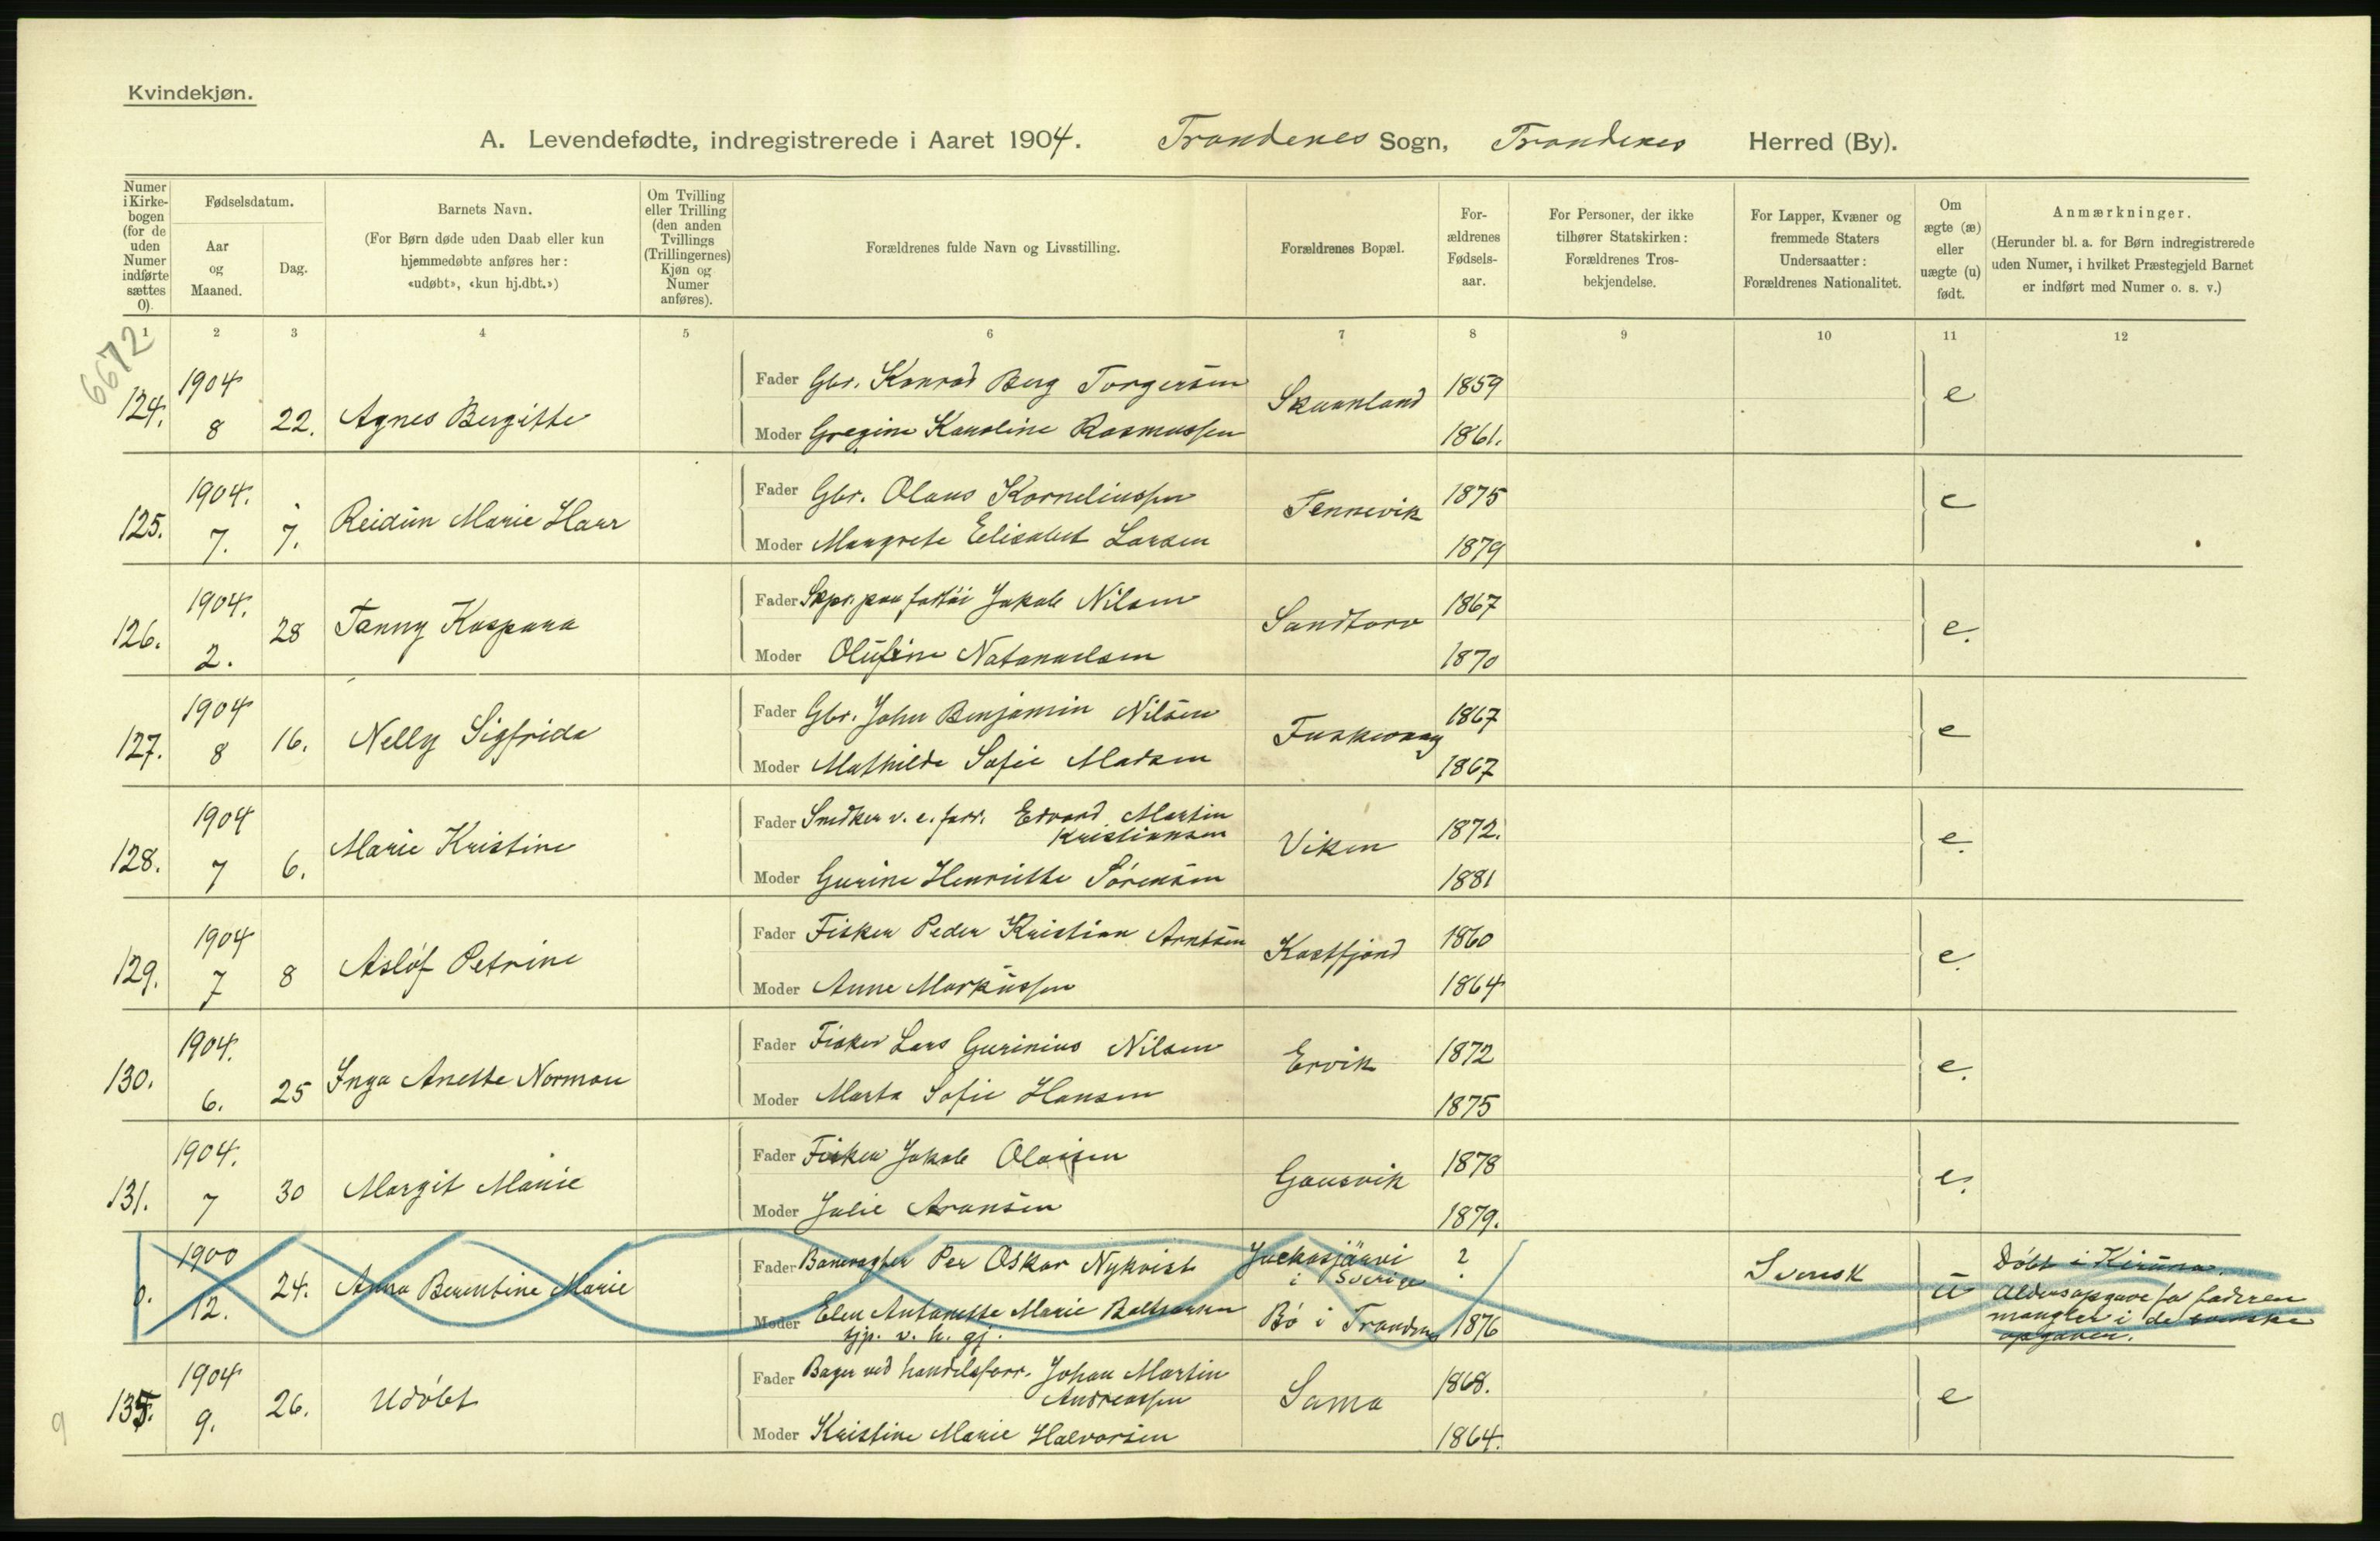 Kvindekjøn.
A. Levendefødte, indregistrerede i Aaret 1904. Trondenes Sogn, Trondenes Herred (By).
Numer i Kirkebogen (for de uden Numer indførte sættes 0).
Fødselsdatum.
Aar og Maaned.
Dag.
Barnets Navn.
(For Børn døde uden Daab eller kun hjemmedøbte anføres her: «udøbt», «kun hj.dbt.»)
Om Tvilling eller Trilling (den anden Tvillings (Trillingernes) Kjøn og Numer anføres).
Forældrenes fulde Navn og Livsstilling.
Forældrenes Bopæl.
Forældrenes Fødselsaar.
For Personer, der ikke tilhører Statskirken: Forældrenes Trosbekjendelse.
For Lapper, Kvæner og fremmede Staters Undersaatter: Forældrenes Nationalitet.
Om ægte (æ) eller uægte (u) født.
Anmærkninger.
(Herunder bl. a. for Børn indregistrerede uden Numer, i hvilket Præstegjeld Barnet er indført med Numer o. s. v.)
1 2 3 4 5 6 7 8 9 10 11 12
6672
124. 1904 8 22. Agnes Bergitte
Fader Gbr. Konrad Berg Torgersen Skaanland 1859 e
Moder Gregine Karoline Rasmussen 1861.
125. 1904. 7. 7. Reidun Marie Haar
Fader Gbr. Olaus Korneliussen Tennevik 1875 e
Moder Margrete Elisabet Larsen 1879
126. 1904. 2. 28 Fanny Kaspara
Fader Skpr. paa fartøi Jakob Nilsen Sandtorv 1867 e.
Moder Olufine Natanaelsen 1870
127. 1904 8 16. Nelly Sigfrida
Fader Gbr. John Benjamin Nilsen Fuskevaag 1867 e
Moder Mathilde Sofie Madsen 1867
128. 1904 7 6. Marie Kristine
Fader Snedker v. e. forr. Edvard Martin Kristiansen Viken 1872. e.
Moder Gurine Henriette Sørensen 1881
129. 1904 7 8 Asløf Petrine
Fader Fisker Peder Kristian Arntsen Kastfjord 1860 e.
Moder Anne Markussen 1864
130. 1904. 6. 25 Inga Anette Norman
Fader Fisker Lars Gurinius Nilsen Ervik 1872 e.
Moder Marta Sofie Hansen 1875
131. 1904. 7 30 Margit Marie
Fader Fisker Jakob Olaisen Gausvik 1878 e.
Moder Julie Aronsen 1879.
0. 1900 12. 24. Anna Berentine Marie
Fader Banevagter Per Oskar Nykvist Juckasjärvi i Sverige ? Svensk u Døbt i Kiruna.
Moder Elen Antonette Marie Baltsersen tjp. v. h. gj. Bø i Trondenes 1876 Aldersopgave for faderen mangler i de svenske opgaver.
135. 1904 9. 26. Udøbt
Fader Bager ved handelsforr. Johan Martin Andreassen Sama 1868. e
Moder Kristine Marie Halvorsen 1864.
9